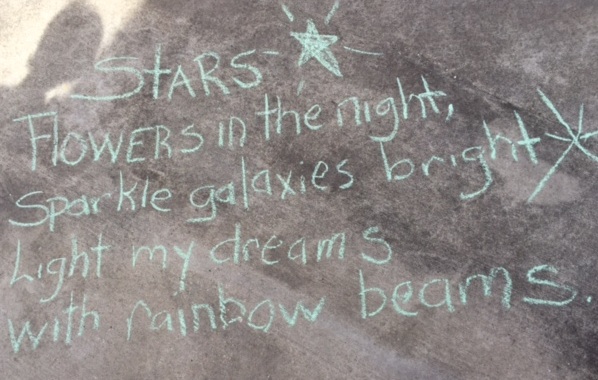 STARS-
FlOWERS in the night,
Sparkle galaxies bright
Light my dreams
with rainbow beams.